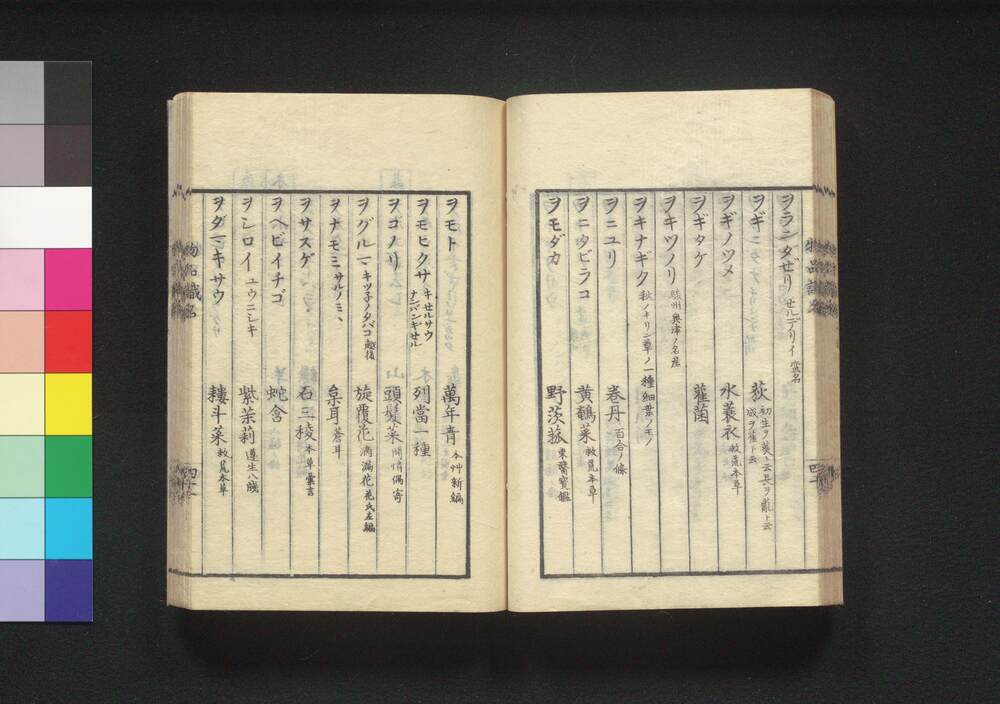 ヲランダゼリ セルデリイ 蛮名
ヲギ 荻 初生ヲ葭ト云長ヲ薍ト云 成ヲ萑ト云
ヲギノツメ 水蓑衣 救荒本草
ヲギタケ 雚菌
ヲキツノリ 駿州興津ノ名産
ヲキナギク 秋ノキリン草ノ一種 細葉ノモノ
ヲニユリ 巻丹 百合ノ條
ヲニタビラコ 黄鵪菜 救荒本草
ヲモダカ 野茨菰 東醫寳鑑
ヲモト 萬年青 本艸新編
ヲモヒクサ キセルサウ ナンバンキセル 列當一種
ヲゴノリ 頭髪菜 閒情偶寄
ヲグルマ キツ子ノタバコ 越後 旋覆花 滴漏花 花氏左編
ヲナモミ サルノミヽ 枲耳 蒼耳
ヲサスゲ 石三稜 本草彙言
ヲヘビイチゴ 蛇含
ヲシロイ ユウニシキ 紫茉莉 遵生八牋
ヲダマキサウ 耬斗菜 救荒本草
物品識名